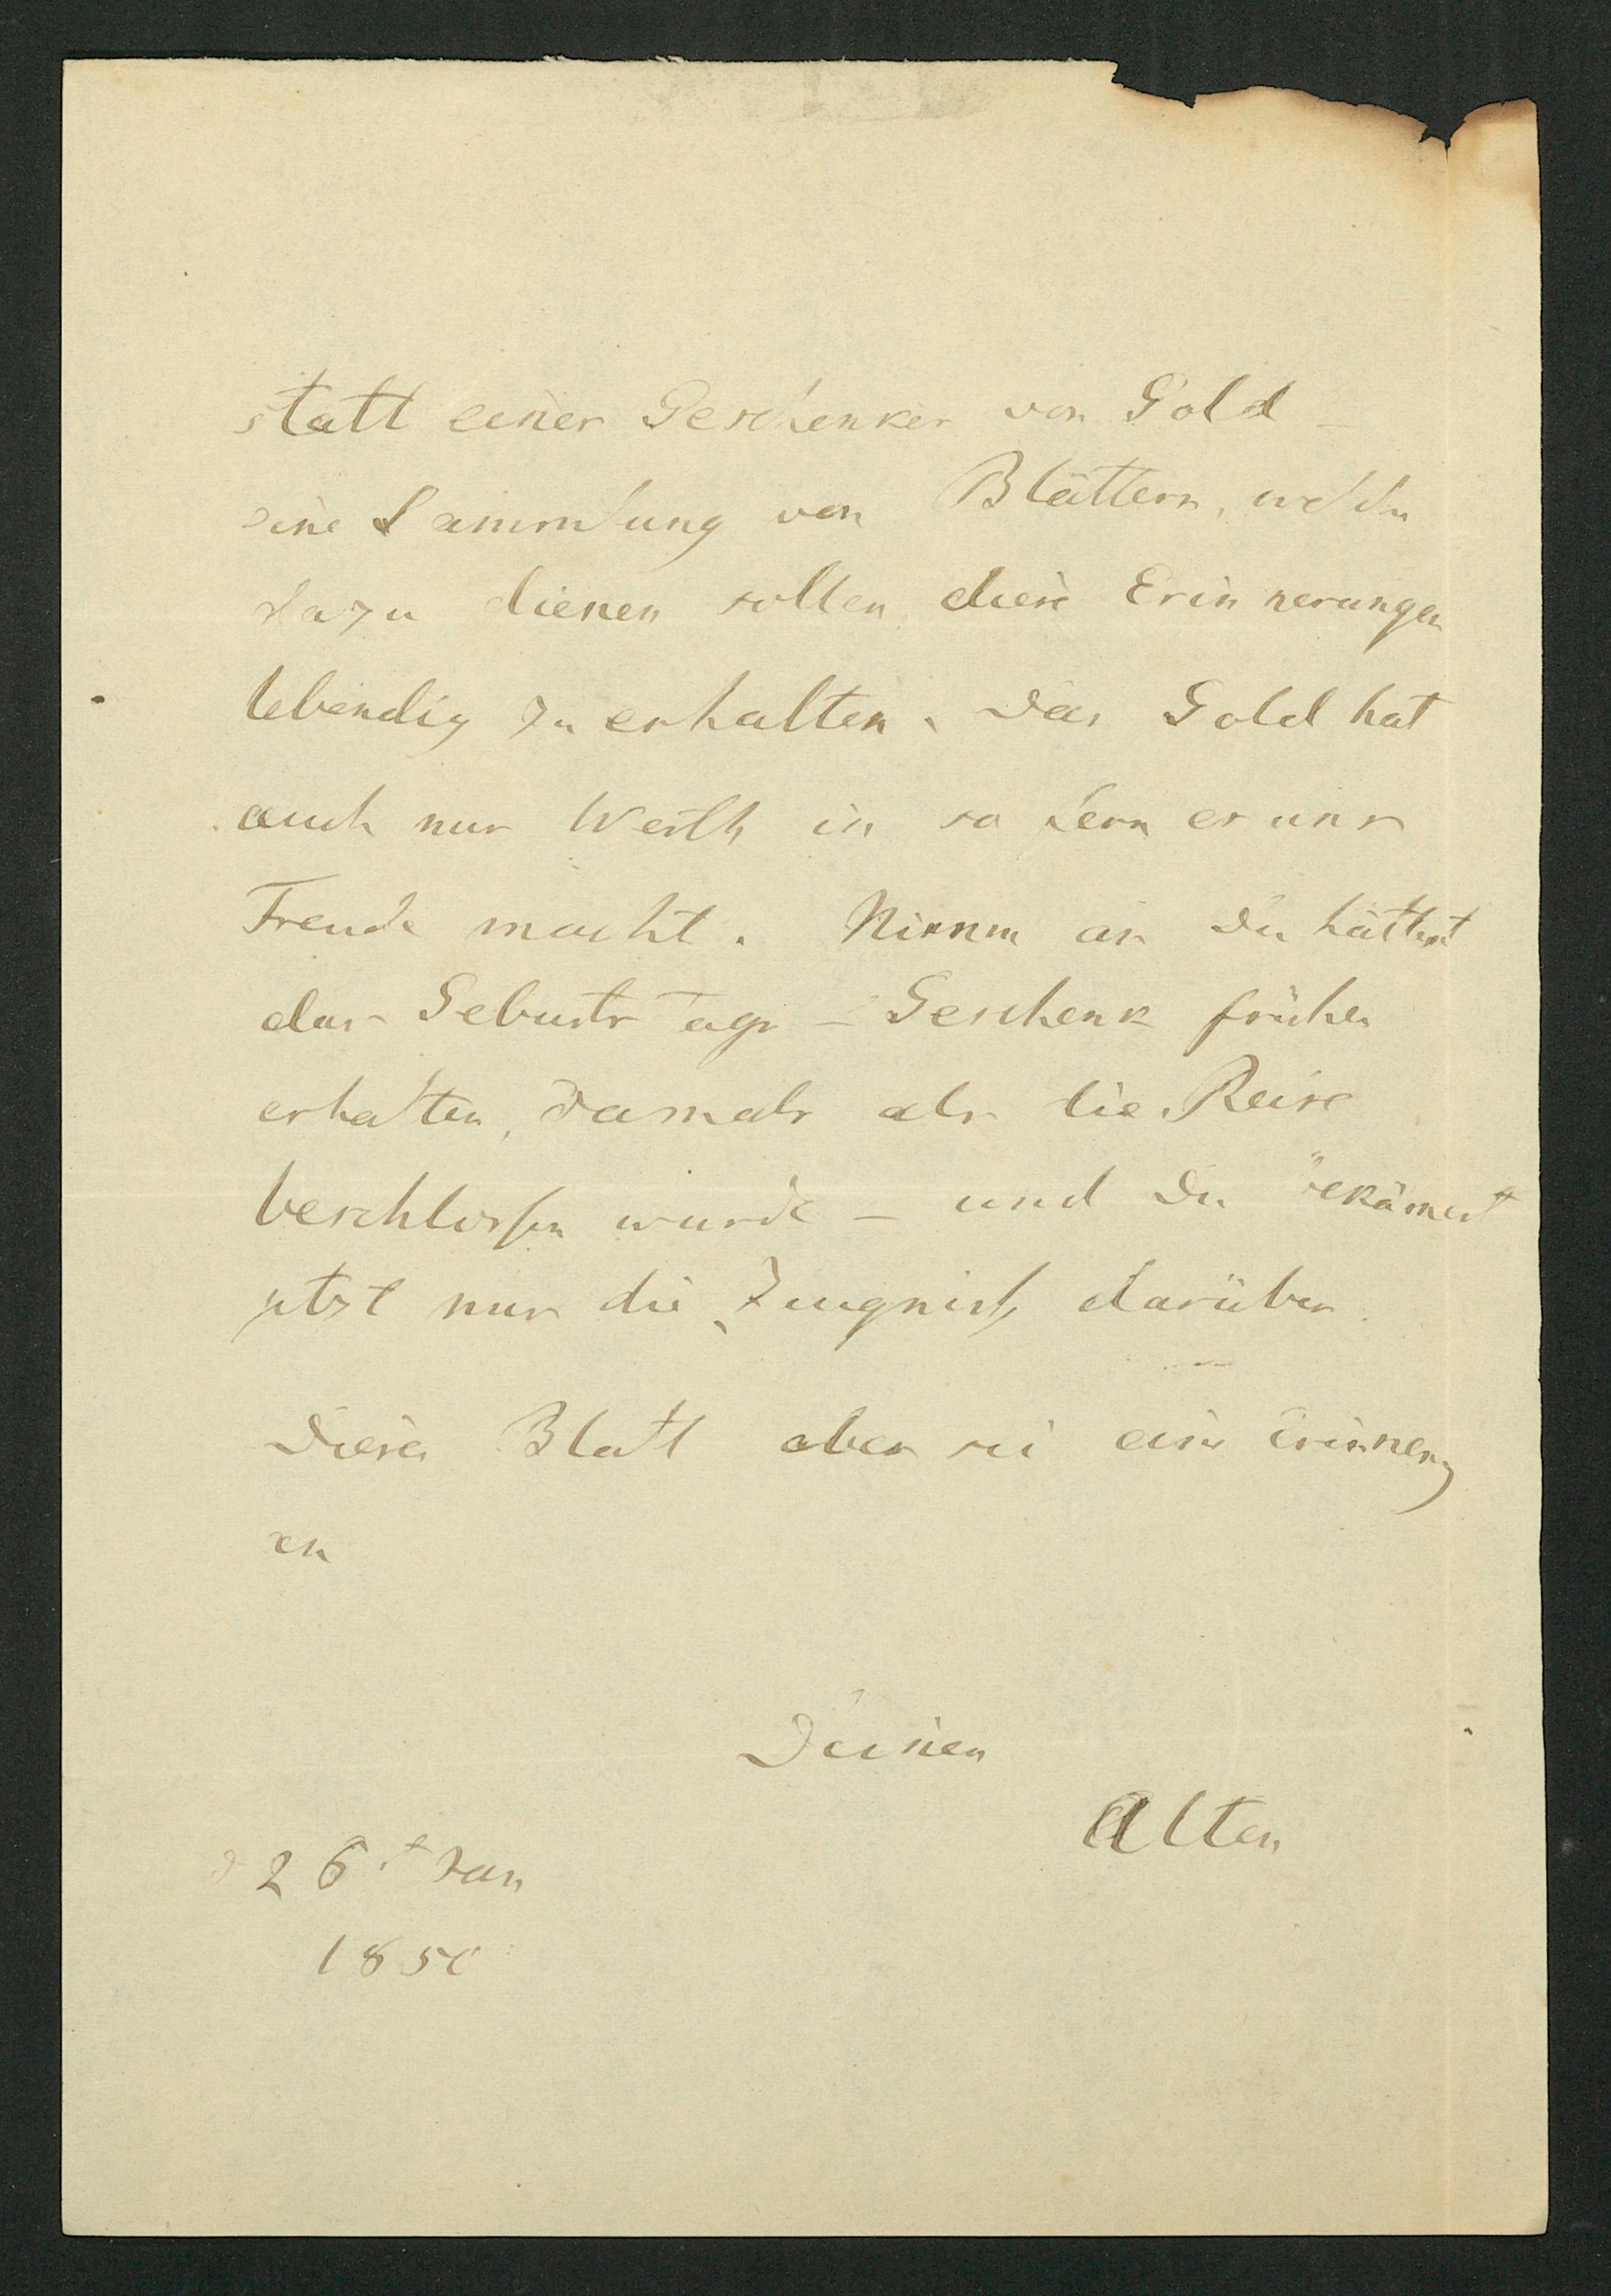 statt eines Geschenkes von Gold –
eine Sammlung von Blättern, welche
dazu dienen sollen, diese Erinnerungen
lebendig zu erhalten. Das Gold hat
auch nur Werth in so fern es uns
Freude macht. Nimm an Du hättest
das Geburts Tags – Geschenk früher
erhalten, damals als die Reise
beschlossen wurde – und Du bekämest
jetzt nur die Zeugniße darüber.
Dieses Blatt aber sei eine Erinnerung
an
Deinen
Alten
d 26t Jan
1850